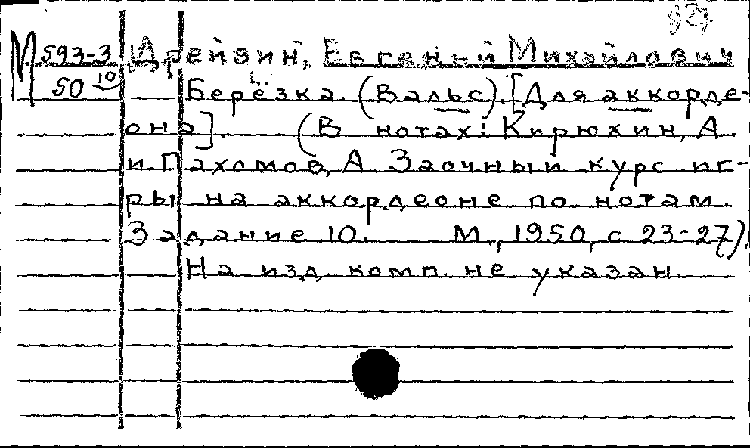 М 593-3 Дрейзин, Евгений Михайлович
50 10 Берёзка. (Вальс). [Для аккорде-
она]. (В нотах: Кирюхин, А
и Пахомов, А Заочный курс иг-
ры на аккордеоне по нотам.
Задание 10. М., 1950, с 23-27).
На изд. комп. не указан.